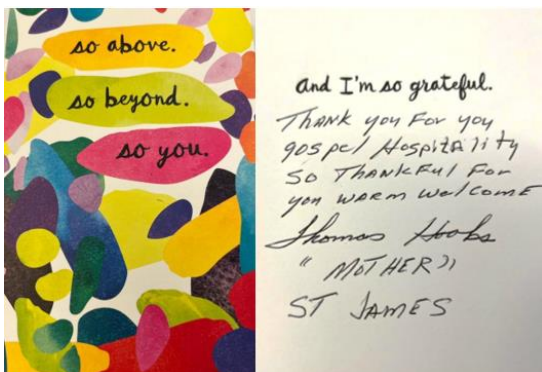 so above.
so beyond.
so you.
and I'm so grateful.
THANK you FOR you
gospel Hospitality
SO THANKFul FOR
you WARM WelCOME
Thomas Hooks
"MOTHER"
ST JAMES